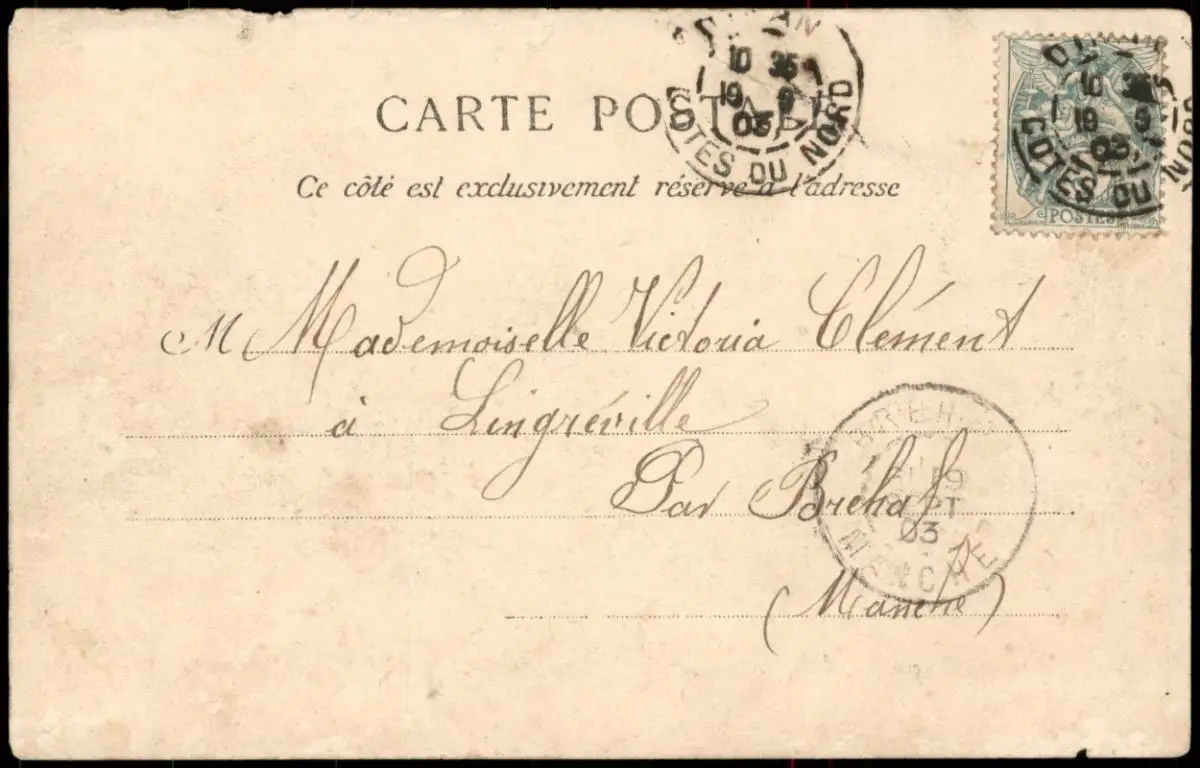 CARTE POSTALE
Ce côté est exclusivement réservé à l'adresse
10 35
19 9
03
COTES DU NORD
10 35
19 9
03
COTES DU NORD
POSTES
M Mademoiselle Victoria Clément
à Lingréville
Par Bréhal
(Manche)
19
SEPT
03
MANCHE